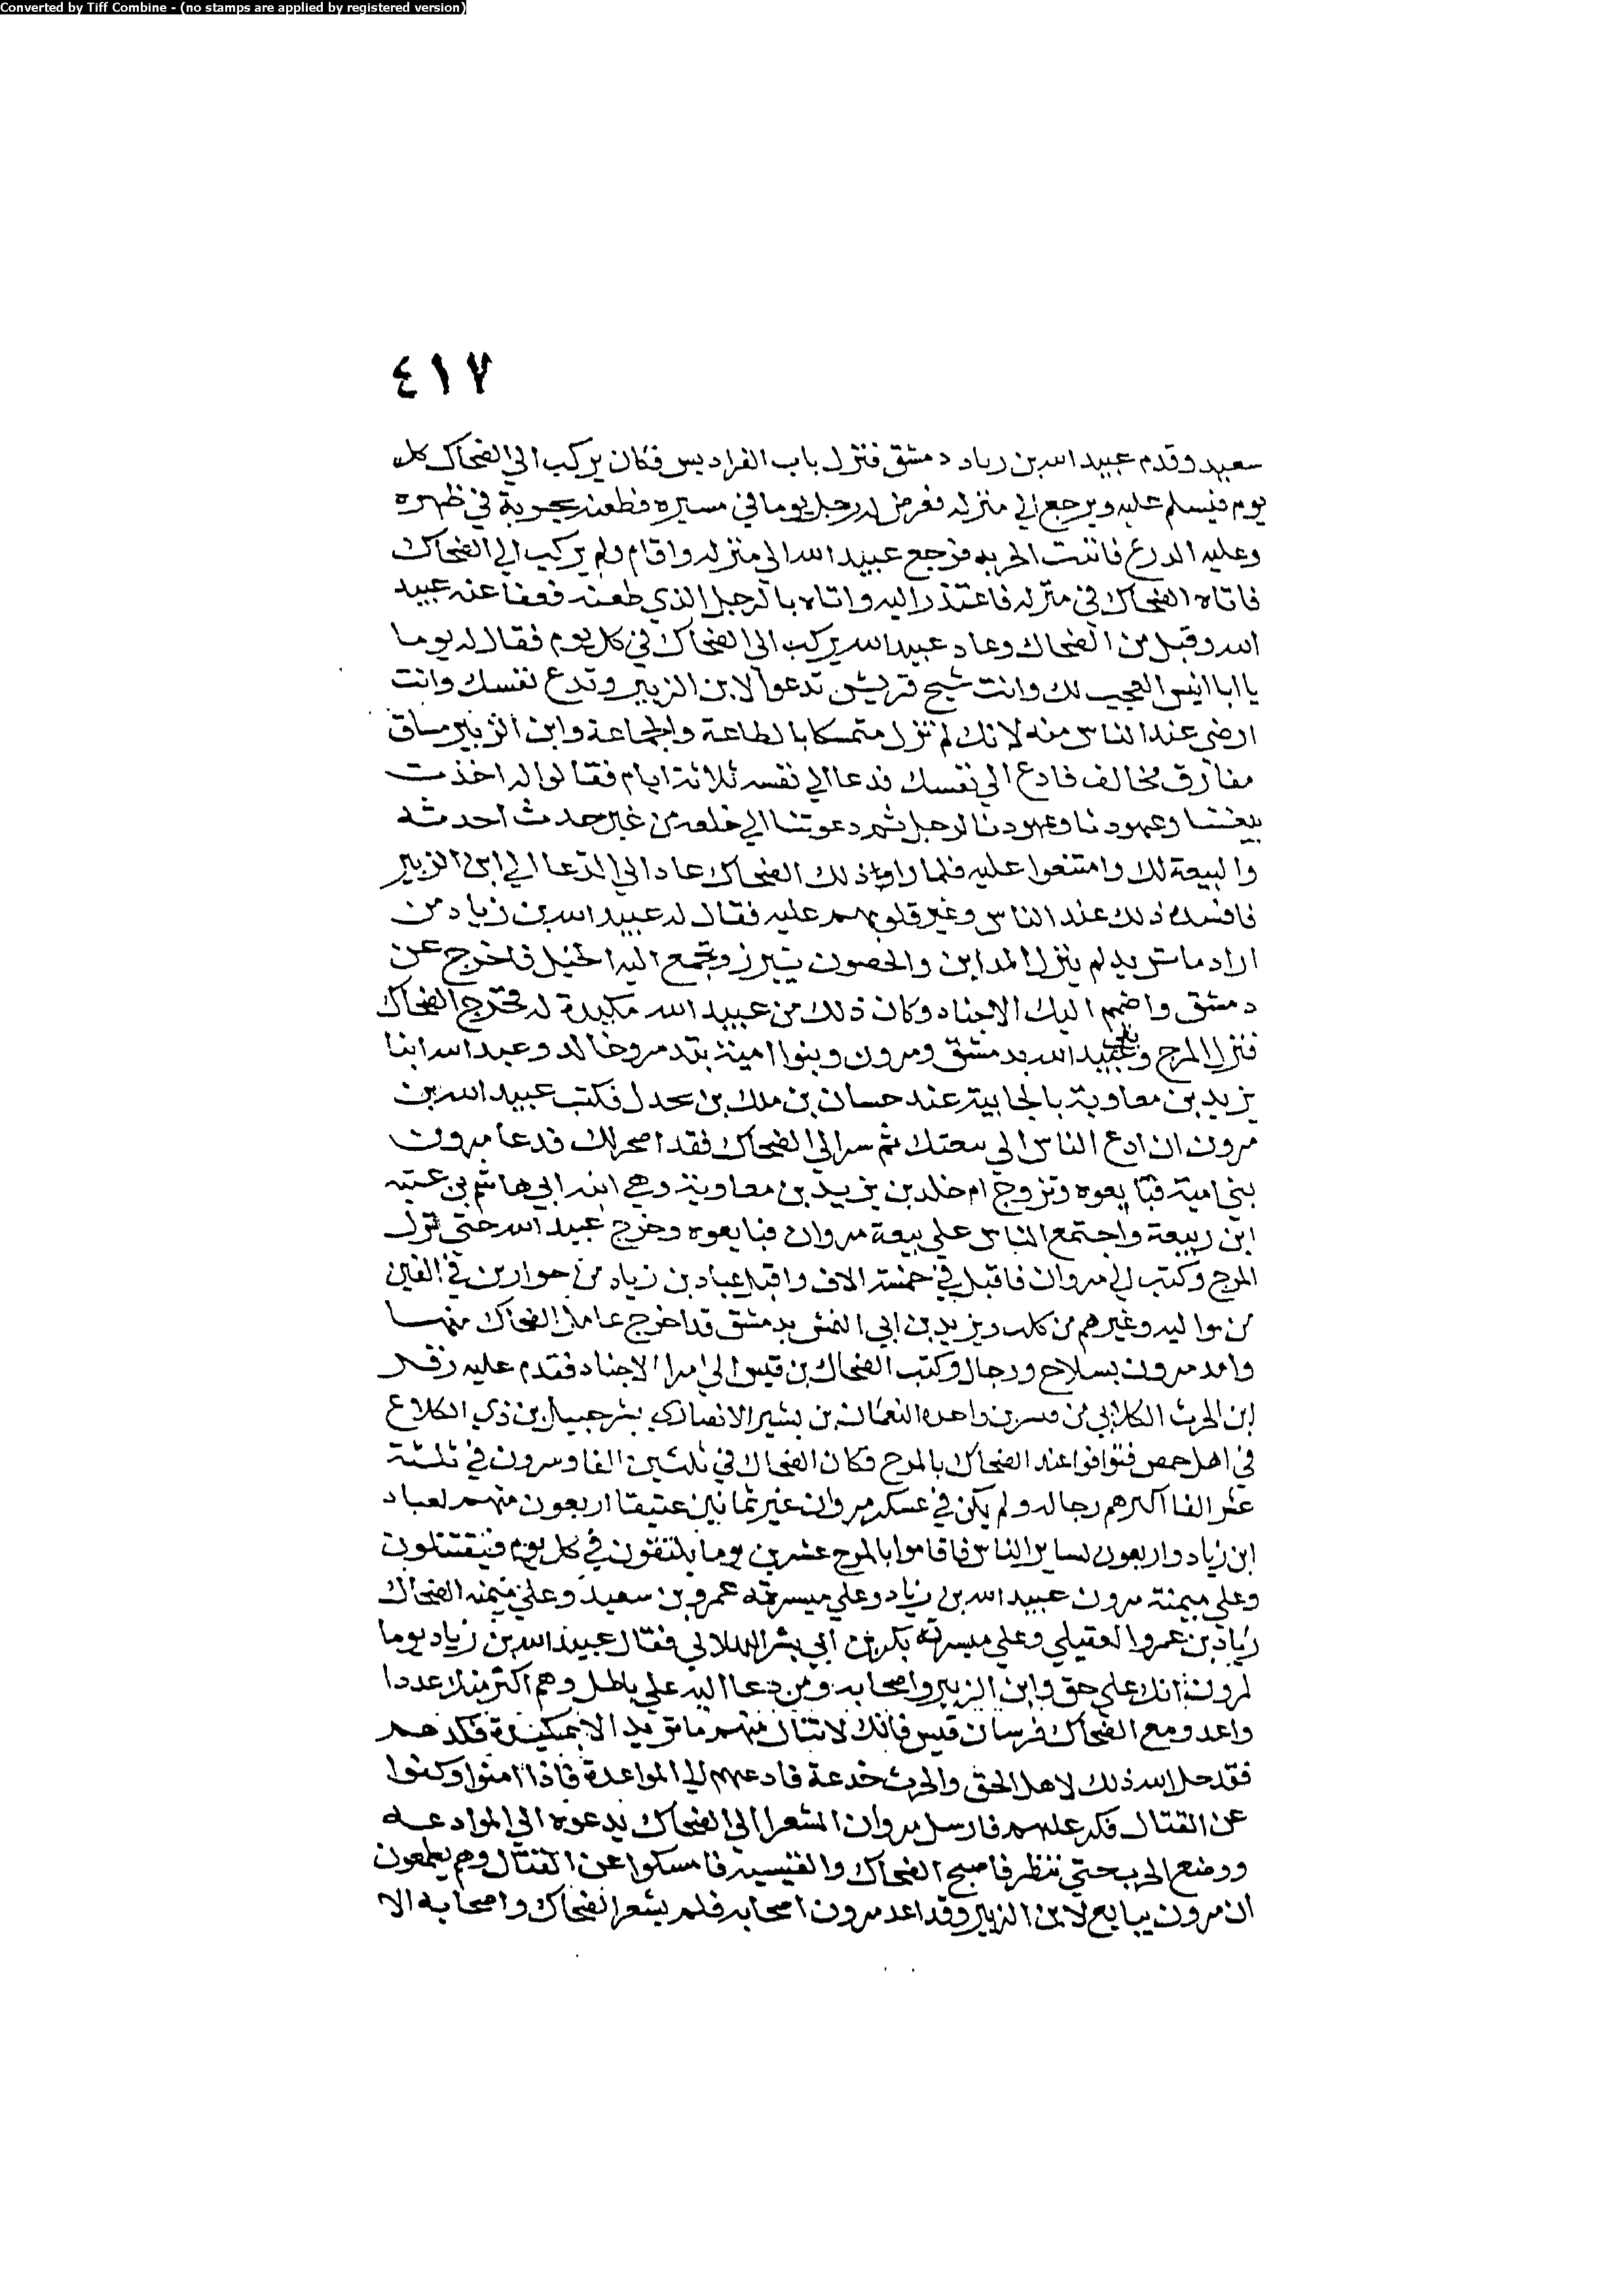 Converted by Tiff Combine - (no stamps are applied by registered version)
٤١٧
سعيد وقدم عبيد الله بن زياد دمشق فنزل باب الفراديس فكان يركب الي الضحاك كل
يوم فيسلم عليه ويرجع الي منزله فعرض له رجل يوما في مسيره فطعنه بحربة في ظهره
وعليه الدرع فاثنت الحربه فرجع عبيد الله الي منزله واقام ولم يركب الي الضحاك
فاتاه الضحاك في منزله فاعتذر اليه واتاه بالرجل الذي طعنه فعفا عنه عبيد
الله وقبل من الضحاك وعاد عبيد الله يركب الي الضحاك في كل يوم فقال له يوما
يا ابا انيس العجب لك وانت شيخ قريش تدعوا لابن الزبير وتدع نفسك وانت
ارضي عند الناس منه لانك لم تزل متمسكا بالطاعة والجماعة وابن الزبير مساق
مفارق مخالف فادع الي نفسك فدعا الي نفسه ثلاثة ايام فقالوا له اخذت
بيعتنا وعهودنا وعهودنا لرجل ثم دعوتنا الي خلعه من غير حدث احدثه
والبيعة لك وامتنعوا عليه فلما راي ذلك الضحاك عاد الي الدعا الي ابن الزبير
فافسده ذلك عند الناس وغير قلوبهم عليه فقال له عبيد الله بن زياد من
اراد ما تريد لم ينزل المداين والحصون يتبرز ويجمع اليه الخيل فاخرج عن
دمشق واضمم اليك الاجناد وكان ذلك من عبيد الله مكيدة له فخرج الضحاك
فنزل المرج وبقي عبيد الله بدمشق ومرون وبنوا امية بتدمر وخالد وعبد الله ابنا
يزيد بن معاوية بالجابية عند حسان بن ملك بن بحدل فكتب عبيد الله بن
مرون ان ادع الناس الي بيعتك ثم سر الي الضحاك فقد اصحر لك فدعا مرون
بني امية فبايعوه وتزوج ام خلد بن يزيد بن معاوية وهي ابنه ابي هاشم بن عتبه
ابن ربيعة واجتمع الناس علي بيعة مروان فبايعوه وخرج عبيد الله حتي نزل
المرج وكتب الي مروان فاقبل في خمسة الاف واقبل عباد بن زياد من حوارين في الفين
من مواليه وغيرهم من كلب ويزيد بن ابي النمس بدمشق قد اخرج عامل الضحاك منها
وامد مرون بسلاح ورجال وكتب الضحاك بن قيس الي امرا الاجناد فقدم عليه زفر
ابن الحرث الكلابي من قنسرين وامده النعمان بن بشير الانصاري بشرحبيل بن ذي الكلاع
في اهل حمص فتوافوا عند الضحاك بالمرج فكان الضحاك في ثلثين الفا ومرون في ثلثة
عشر الفا اكثرهم رجاله ولم يكن في عسكر مروان غير ثمانين عتيقا اربعون منهم لعباد
ابن زياد واربعون لساير الناس فاقاموا بالمرج عشرين يوما يلتقون في كل يوم فيقتتلون
وعلي ميمنة مرون عبيد الله بن زياد وعلي ميسرته عمرو بن سعيد وعلي ميمنه الضحاك
زياد بن عمرو العقيلي وعلي ميسرته بكر بن ابي بشر الهلالي فقال عبيد الله بن زياد يوما
لمرون انك علي حق وابن الزبير واصحابه ومن دعا اليه علي باطل وهم اكثر منك عددا
واعد ومع الضحاك فرسان قيس فانك لا تنال منهم ما تريد الا بمكيدة فكدهم
فقد حل الله ذلك لاهل الحق والحرب خدعة فادعهم الي المواعدة فاذا امنوا وكفوا
عن القتال فكر عليهم فارسل مروان الشعرا الي الضحاك يدعوه الي الموادعه
ووضع الحرب حتي ننظر فاصبح الضحاك والقيسية فامسكوا عن القتال وهم يطمعون
ان مرون يبايع لابن الزبير وقد اعد مرون اصحابه فلم يشعر الضحاك واصحابه الا